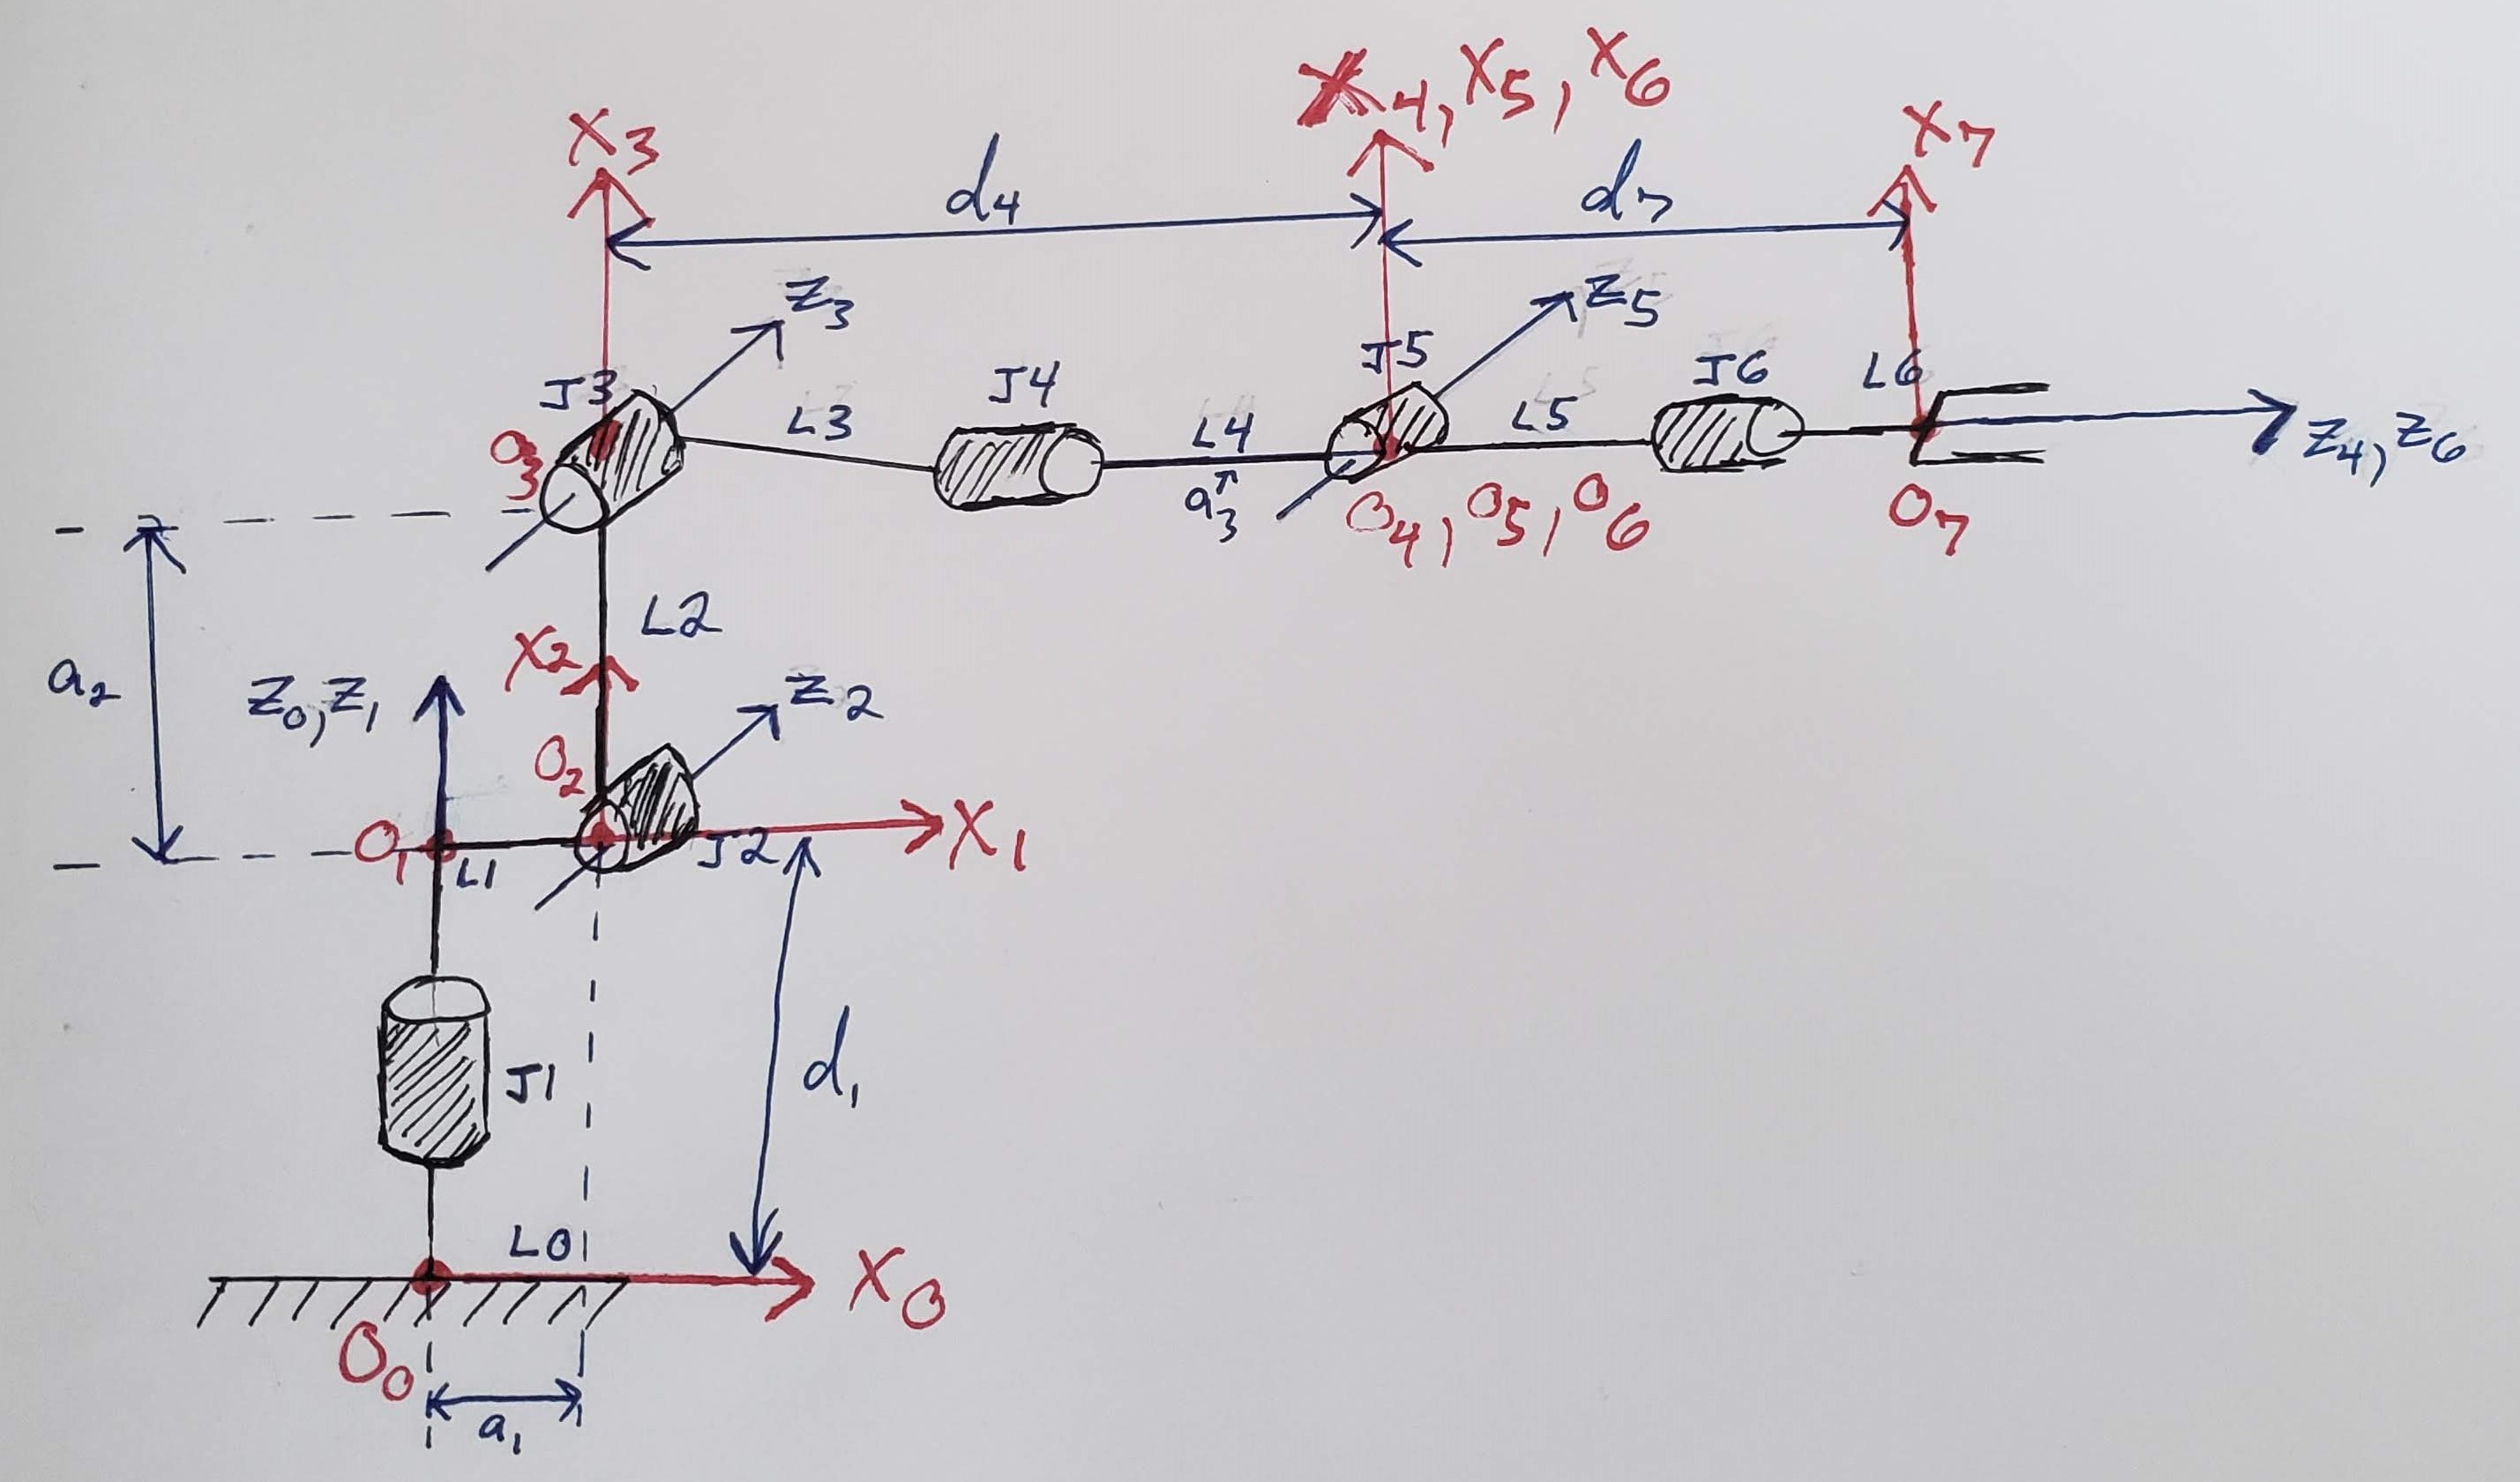 X₄, X₅, X₆
X₃
X₇
d₄
d₇
Z₃
Z₅
J3
J5
J4
J6
L6
L3
L4
L5
O₃
Z₄, Z₆
a₃
O₄, O₅, O₆
O₇
L2
X₂
a₂
Z₀, Z₁
Z₂
O₂
X₁
O₁
L1
J2
d₁
J1
L0
X₀
O₀
a₁